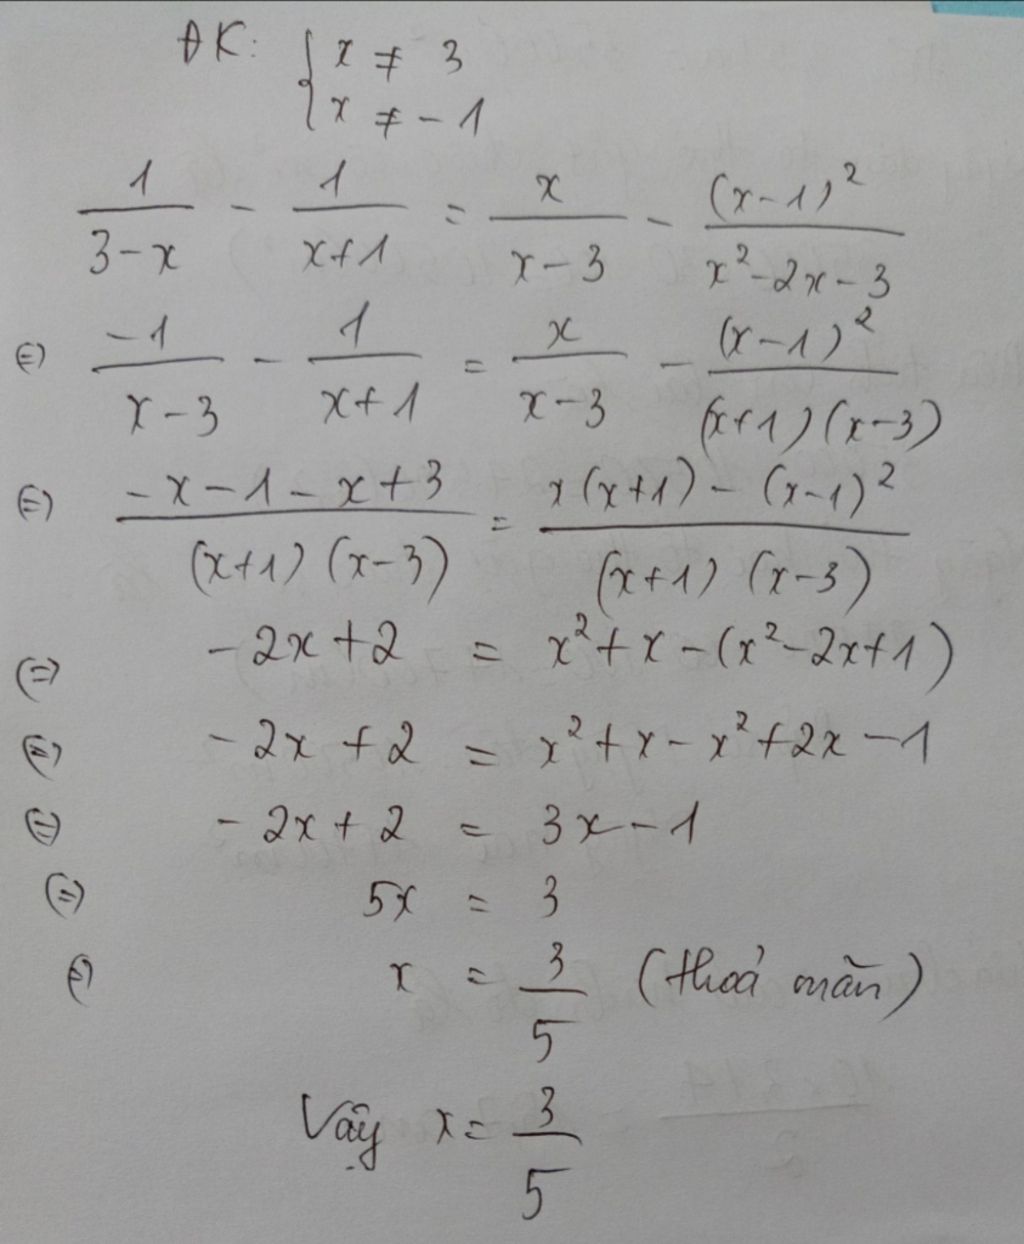 ĐK: { x ≠ 3
x ≠ -1
1/(3-x) - 1/(x+1) = x/(x-3) - (x-1)²/(x²-2x-3)
⇔ -1/(x-3) - 1/(x+1) = x/(x-3) - (x-1)²/((x+1)(x-3))
⇔ (-x-1-x+3)/((x+1)(x-3)) = (x(x+1)-(x-1)²)/((x+1)(x-3))
⇔ -2x+2 = x²+x-(x²-2x+1)
⇔ -2x+2 = x²+x-x²+2x-1
⇔ -2x+2 = 3x-1
⇔ 5x = 3
⇔ x = 3/5 (thoả mãn)
Vậy x = 3/5